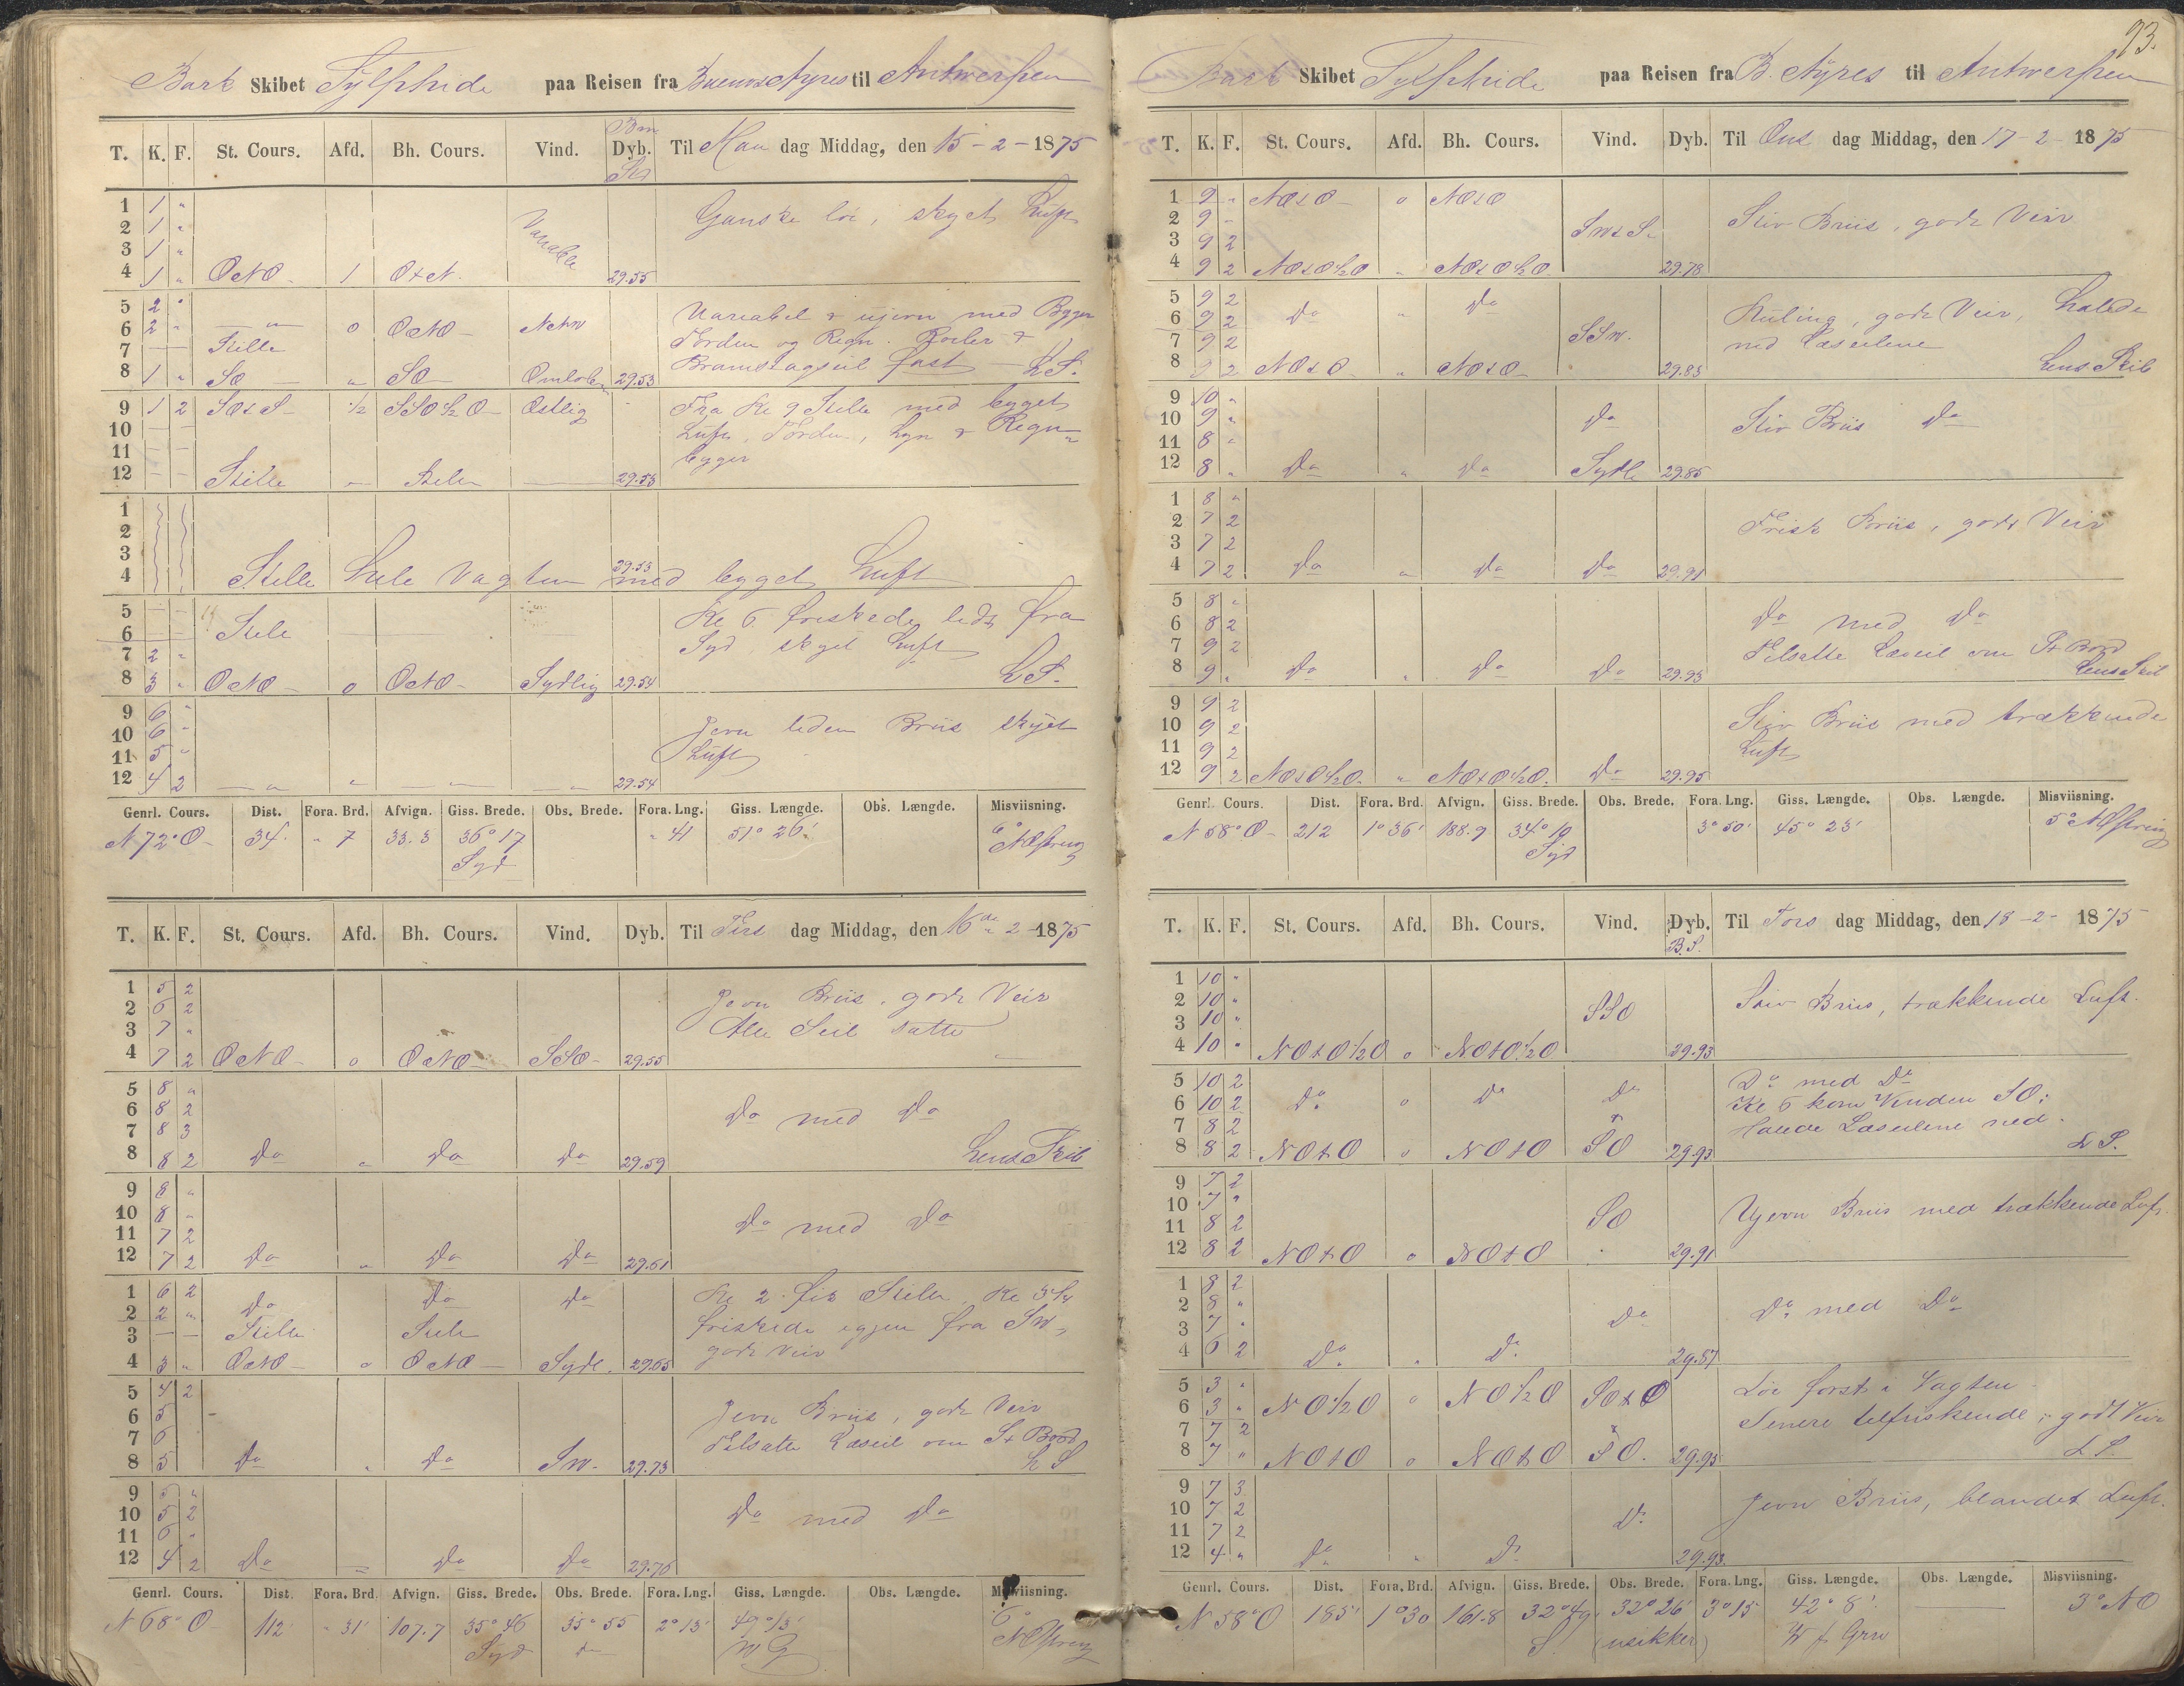 Bark Skibet Sylphide paa Reisen fra Buenos Ayres til Antwerpen
T. K. F. St. Cours. Afd. Bh. Cours. Vind. Dyb. Til Man dag Middag, den 15-2-1875
1 1 "
2 1 "
3 1 "
4 1 " OtNO 1 OtN. Variabel 29.55
Ganske löi, skyet Luft
5 2 "
6 2 " — " — o OtNO
7 — Stille
8 1 " SO — " SO Omloben 29.53
Variabel & ujevn med Byger
Torden og Regn. Roiler &
Bramstagseil fast L S.
9 1 2 SOtS ½ SSO½O Ostlig
10 — —
11 — —
12 — — Stille — Stille — 29.53
Fra Kl 9 Stille med byget
Luft, Torden, Lyn & Regn
byger
1
2
3
4 Stille hele Vagten med byget Luft 29.53
5 — —
6 — — Stille
7 2 "
8 3 " OtNO o OtNO Sydlig 29.54
Kl 6 friskede lidt fra
Syd, skyet Luft
L S.
9 6 "
10 6 "
11 5 "
12 4 2 — " — " — " — " 29.54
Jevn liden Briis skyet
Luft
Genrl. Cours. Dist. Fora. Brd. Afvign. Giss. Brede. Obs. Brede. Fora. Lng. Giss. Længde. Obs. Længde. Misviisning.
N 72° O 34' " 7 33.3 36° 17 Syd " 41 51° 26' 6°
T. K. F. St. Cours. Afd. Bh. Cours. Vind. Dyb. Til Tirs dag Middag, den 16de 2-1875
1 5 2
2 6 2
3 7 "
4 7 2 OtNO o OtNO SSO 29.55
Jevn Briis, godt Veir
Alle Seil satte
5 8 "
6 8 2
7 8 3
8 8 2 Do " Do Do 29.59
Do med Do
Lens Skib
9 8 "
10 8 "
11 7 2
12 7 2 Do " Do Do 29.61
Do med Do
1 6 2
2 2 " Do Do Do
3 — — Stille Stille
4 3 " OtNO o OtNO Sydl. 29.65
Kl 2 fik Stille, Kl 3¼
friskede igjen fra SW,
godt Veir
5 4 2
6 5
7 6
8 5 Do " Do SW. 29.73
Jevn Briis, godt Veir
Tilsatte Læseil om St Bord
L S
9 5 "
10 5 2
11 6 "
12 4 2 Do Do Do 29.76
Do med Do
Genrl. Cours. Dist. Fora. Brd. Afvign. Giss. Brede. Obs. Brede. Fora. Lng. Giss. Længde. Obs. Længde. Misviisning.
N 68° O 112' " 31' 107.7 35° 46 Syd 35° 55 2° 13' 49° 13' W G 6°
93.
Bark Skibet Sylphide paa Reisen fra B. Ayres til Antwerpen
T. K. F. St. Cours. Afd. Bh. Cours. Vind. Dyb. Til Ons dag Middag, den 17-2-1875
1 9 " NOtO o NOtO
2 9 "
3 9 2 SWtS
4 9 2 NOtO½O " NOtO½O 29.78
Stiv Briis, godt Veir
5 9 2
6 9 2 Do " Do
7 9 2 SSW.
8 9 2 NOtO " NOtO 29.83
Kuling, godt Veir, halede
ned Læseilene
Lens Skib
9 10 "
10 9 " Do
11 8 "
12 8 " Do " Do Sydl 29.85
Stiv Briis Do
1 8 "
2 7 2
3 7 2
4 7 2 Do " Do Do 29.91
Frisk Briis, godt Veir
5 8 "
6 8 2
7 9 2
8 9 " Do " Do Do 29.93
Do med Do
Tilsatte Læseil om St Bord
Lens Skib
9 9 2
10 9 2
11 9 2
12 9 2 NOtO½O. " NOtO½O. Do 29.95
Stiv Briis med trækkende
Luft
Genrl. Cours. Dist. Fora. Brd. Afvign. Giss. Brede. Obs. Brede. Fora. Lng. Giss. Længde. Obs. Længde. Misviisning.
N 58° O 212 1° 36' 188.9 34° 10 Syd 3° 50' 45° 23' 5°
T. K. F. St. Cours. Afd. Bh. Cours. Vind. Dyb. Til Tors dag Middag, den 18-2-1875
B.S.
1 10 "
2 10 "
3 10 " SSO
4 10 " NOtO½O o NOtO½O 29.93
Stiv Briis, trækkende Luft.
5 10 2
6 10 2 Do o Do Do
7 8 2
8 8 2 NOtO o NOtO SO 29.93
Do med Do
Kl 6 kom Vinden SO;
Halede Læseilene ned.
L S.
9 7 2
10 7 "
11 8 2 SO
12 8 2 NOtO o NOtO 29.91
Ujevn Briis med trækkende Luft.
1 8 2
2 8 "
3 7 " Do
4 6 2 Do " Do 29.87
Do med Do
5 3 "
6 3 " NO½O o NO½O SOtO
7 7 2
8 7 " NOtO o NOtO SO. 29.95
Löi först i Vagten
Senere tilfriskende; godt Veir
L S.
9 7 3
10 7 2
11 7 2 Do
12 4 " Do " Do 29.93.
Jevn Briis, blandet Luft.
Genrl. Cours. Dist. Fora. Brd. Afvign. Giss. Brede. Obs. Brede. Fora. Lng. Giss. Længde. Obs. Længde. Misviisning.
N 58° O 185' 1° 30 161.8 32° 49' S. 32° 26' (usikker) 3° 15' 42° 8' W f Grw 3° NO